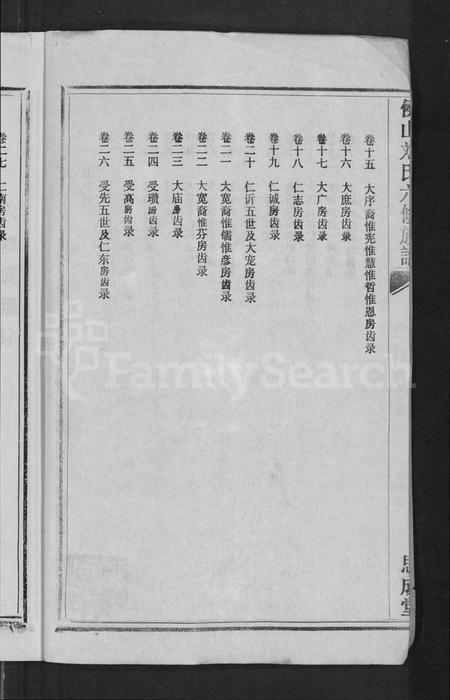 山刘氏六修族谱
卷十五　大序裔惟宪惟慧惟哲惟恩房齿录
卷十六　大庶房齿录
卷十七　大广房齿录
卷十八　仁志房齿录
卷十九　仁诚房齿录
卷二十　仁沂五世及大宠房齿录
卷二一　大宽裔惟儒惟彦房齿录
卷二二　大宽裔惟芬房齿录
卷二三　大庙房齿录
卷二四　受瓒房齿录
卷二五　受高房齿录
卷二六　受先五世及仁东房齿录
思成堂
卷二七　仁南房齿录
FamilySearch